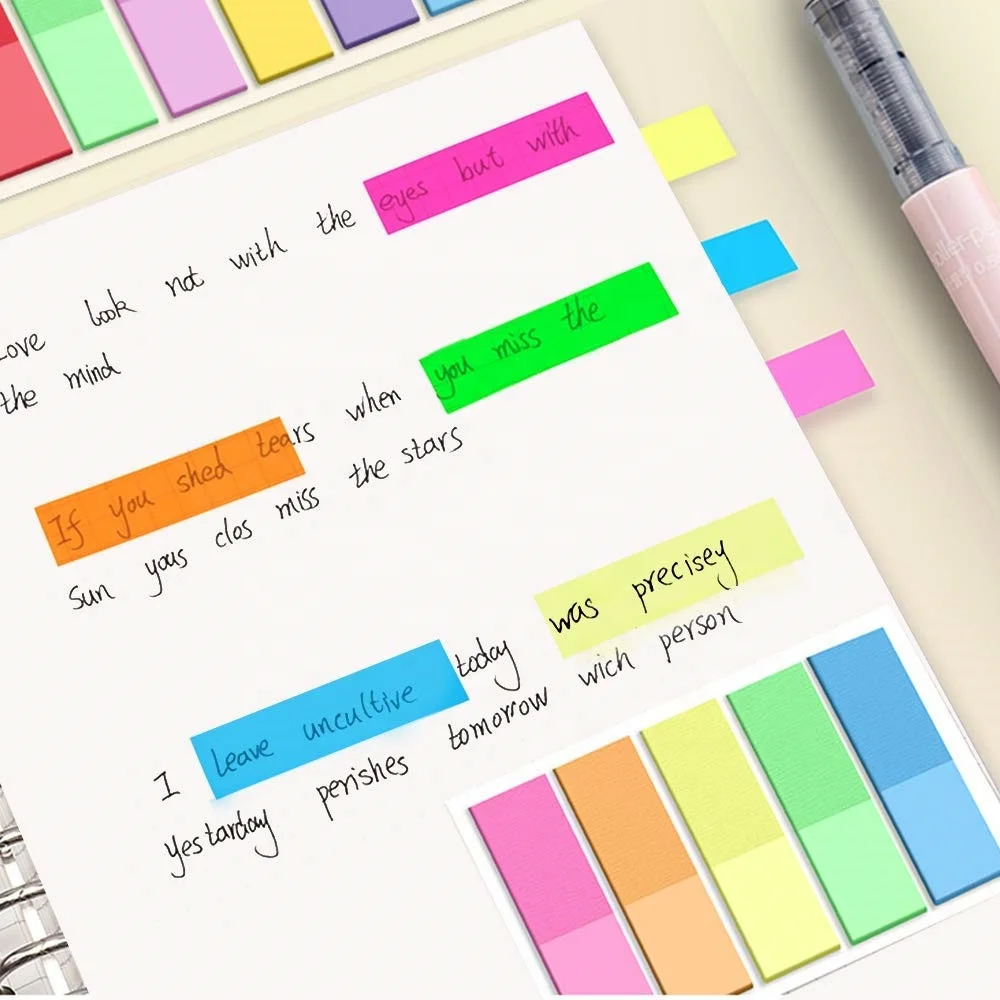 Love look not with the eyes but with
the mind
If you shed tears when you miss the
Sun yous clos miss the stars
I leave uncultive today was precisey
yestarday perishes tomorrow wich person